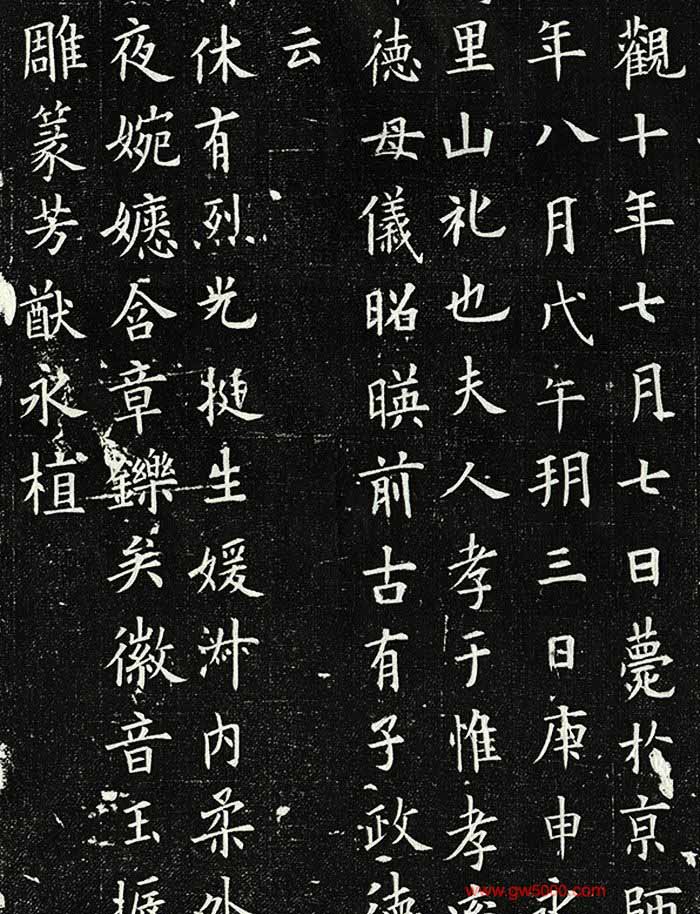 觀十年七月七日薨於京師
年八月戊午玥三日庚申
里山礼也夫人孝于惟孝
德母儀昭暎前古有子政德
云
休有烈光挺生媛淋内柔外
夜婉嬺含章鑠矣徽音玉振
雕篆芳猷永植
www.gw5000.com